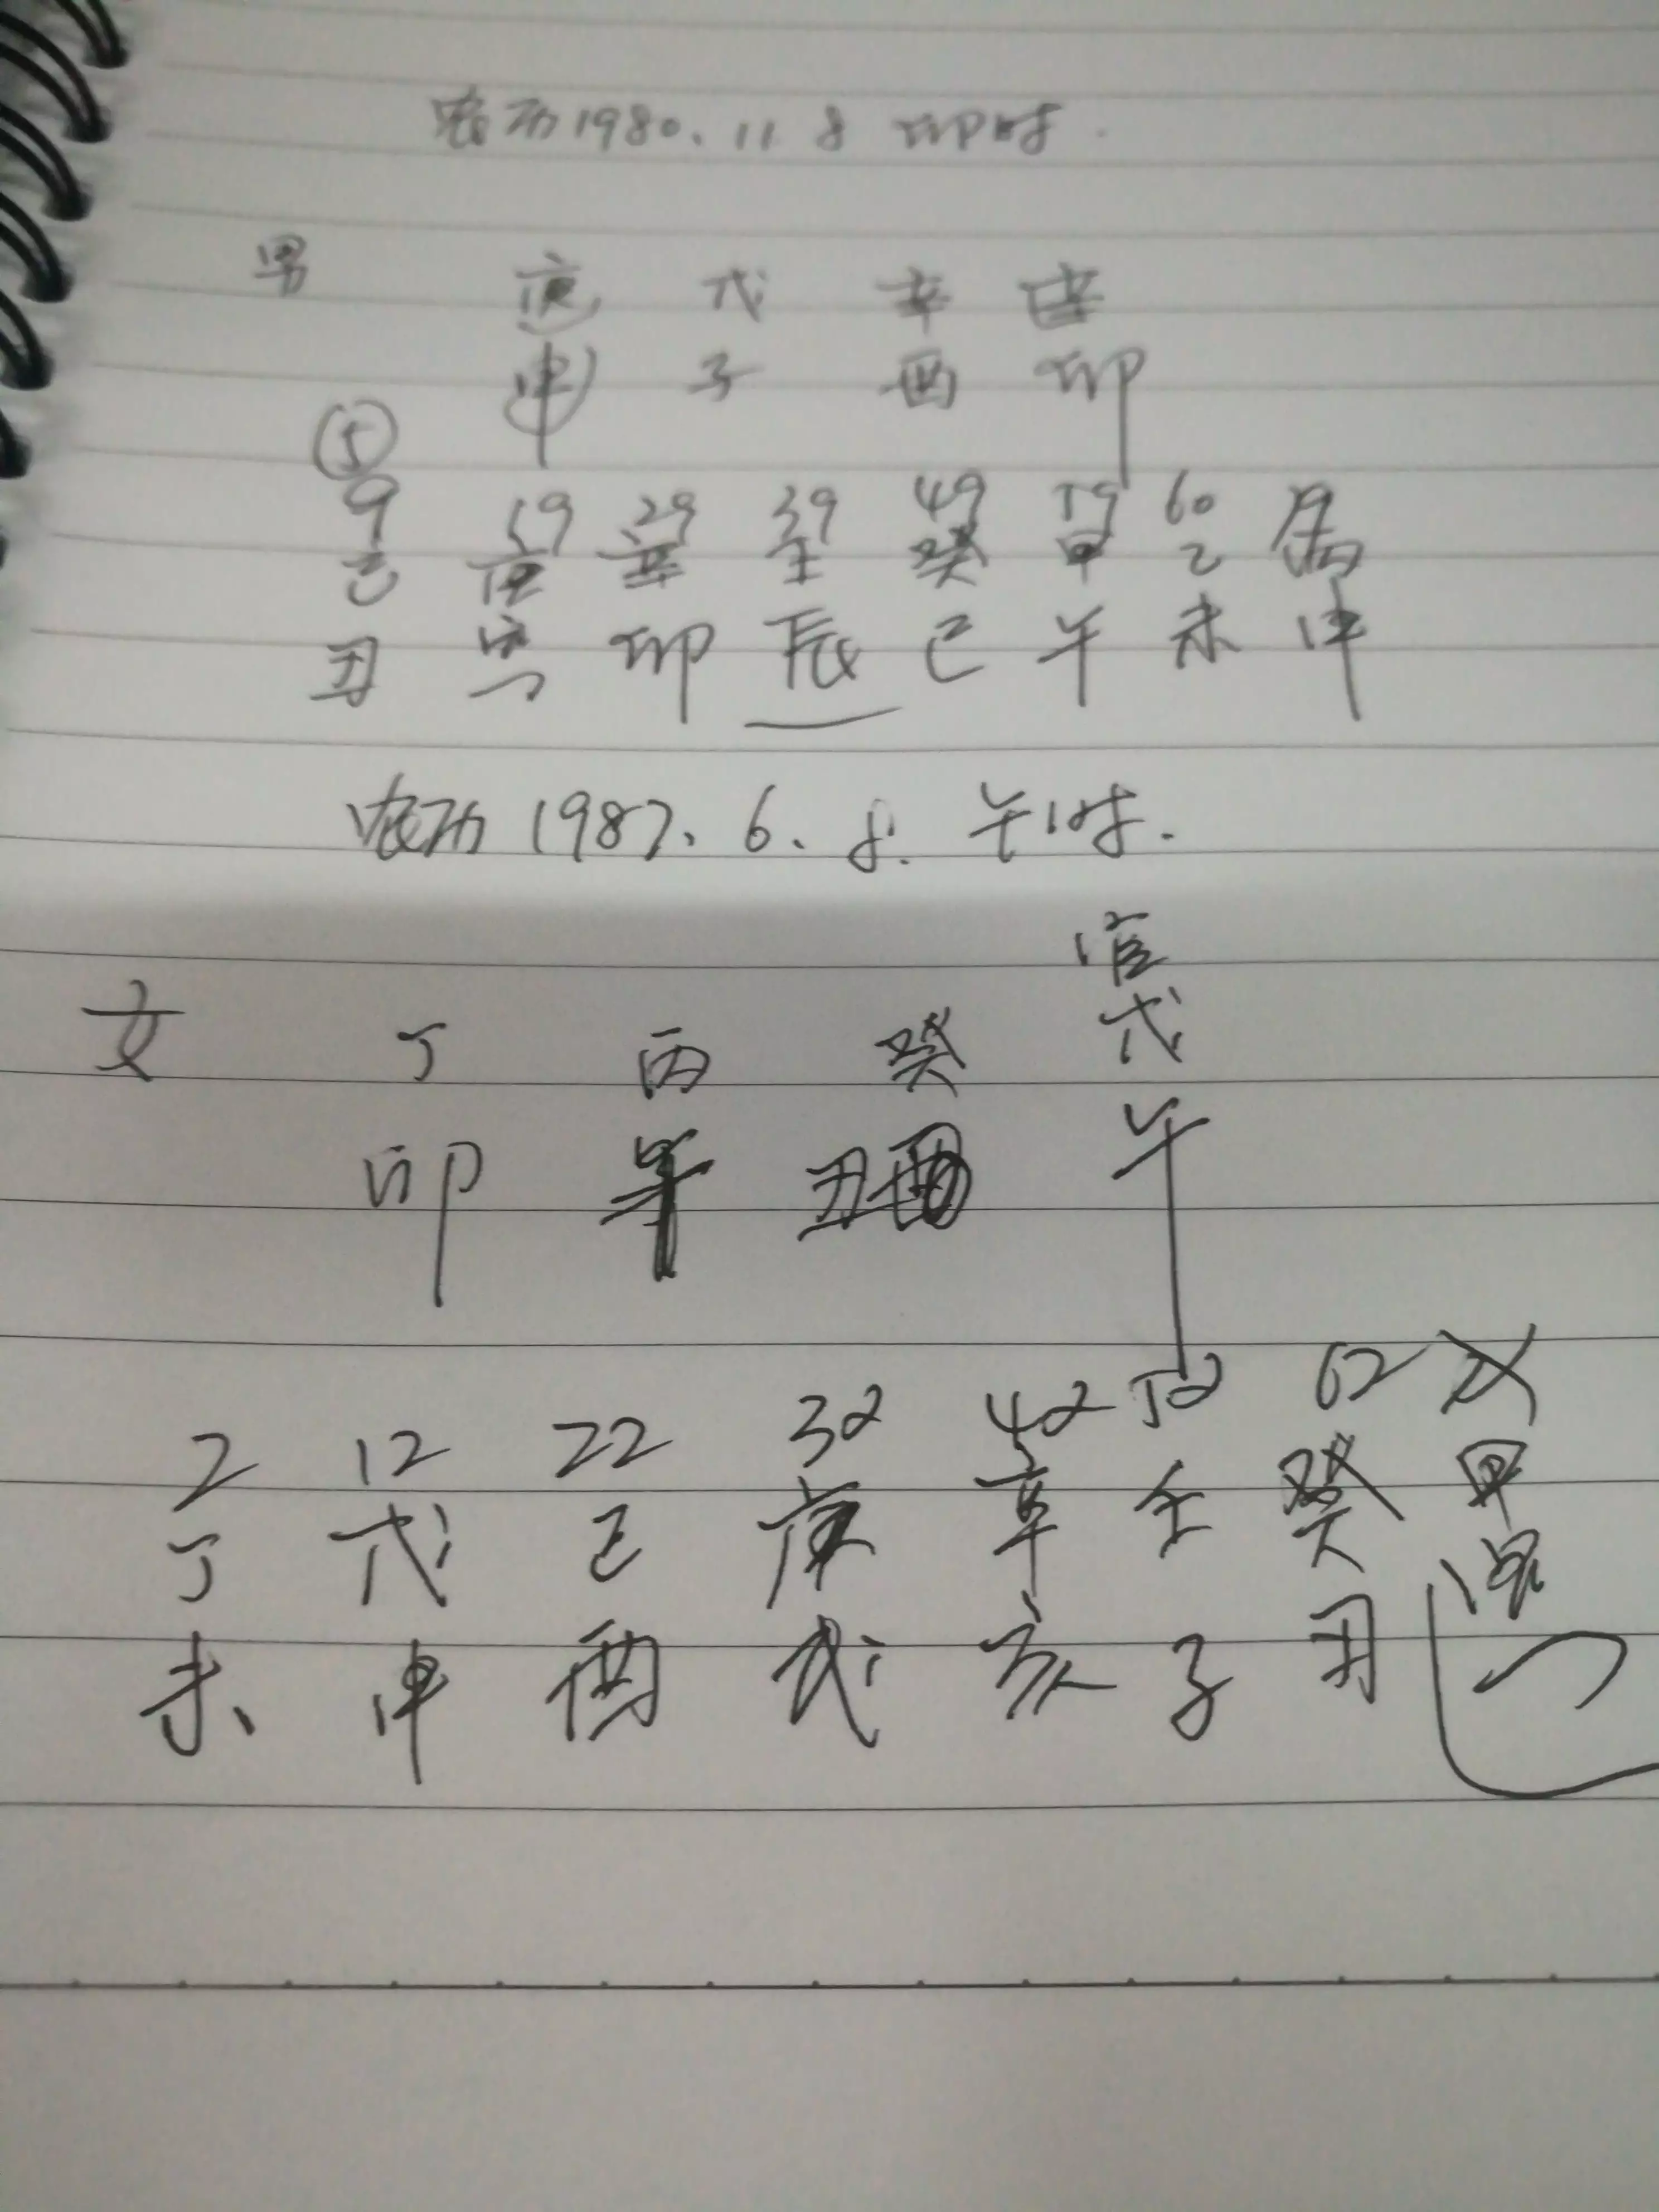 农历1980.11 8 卯时.
男 庚 戊 辛 辛
申 子 酉 卯
5
9 19 29 39 49 59 60
己 庚 辛 壬 癸 甲 乙 丙
丑 寅 卯 辰 巳 午 未 申
农历1987.6.8.午时.
官
女 丁 丙 癸 戊
卯 午 丑 午
2 12 22 32 42 52 62
丁 戊 己 庚 辛 壬 癸 甲
未 申 酉 戌 亥 子 丑